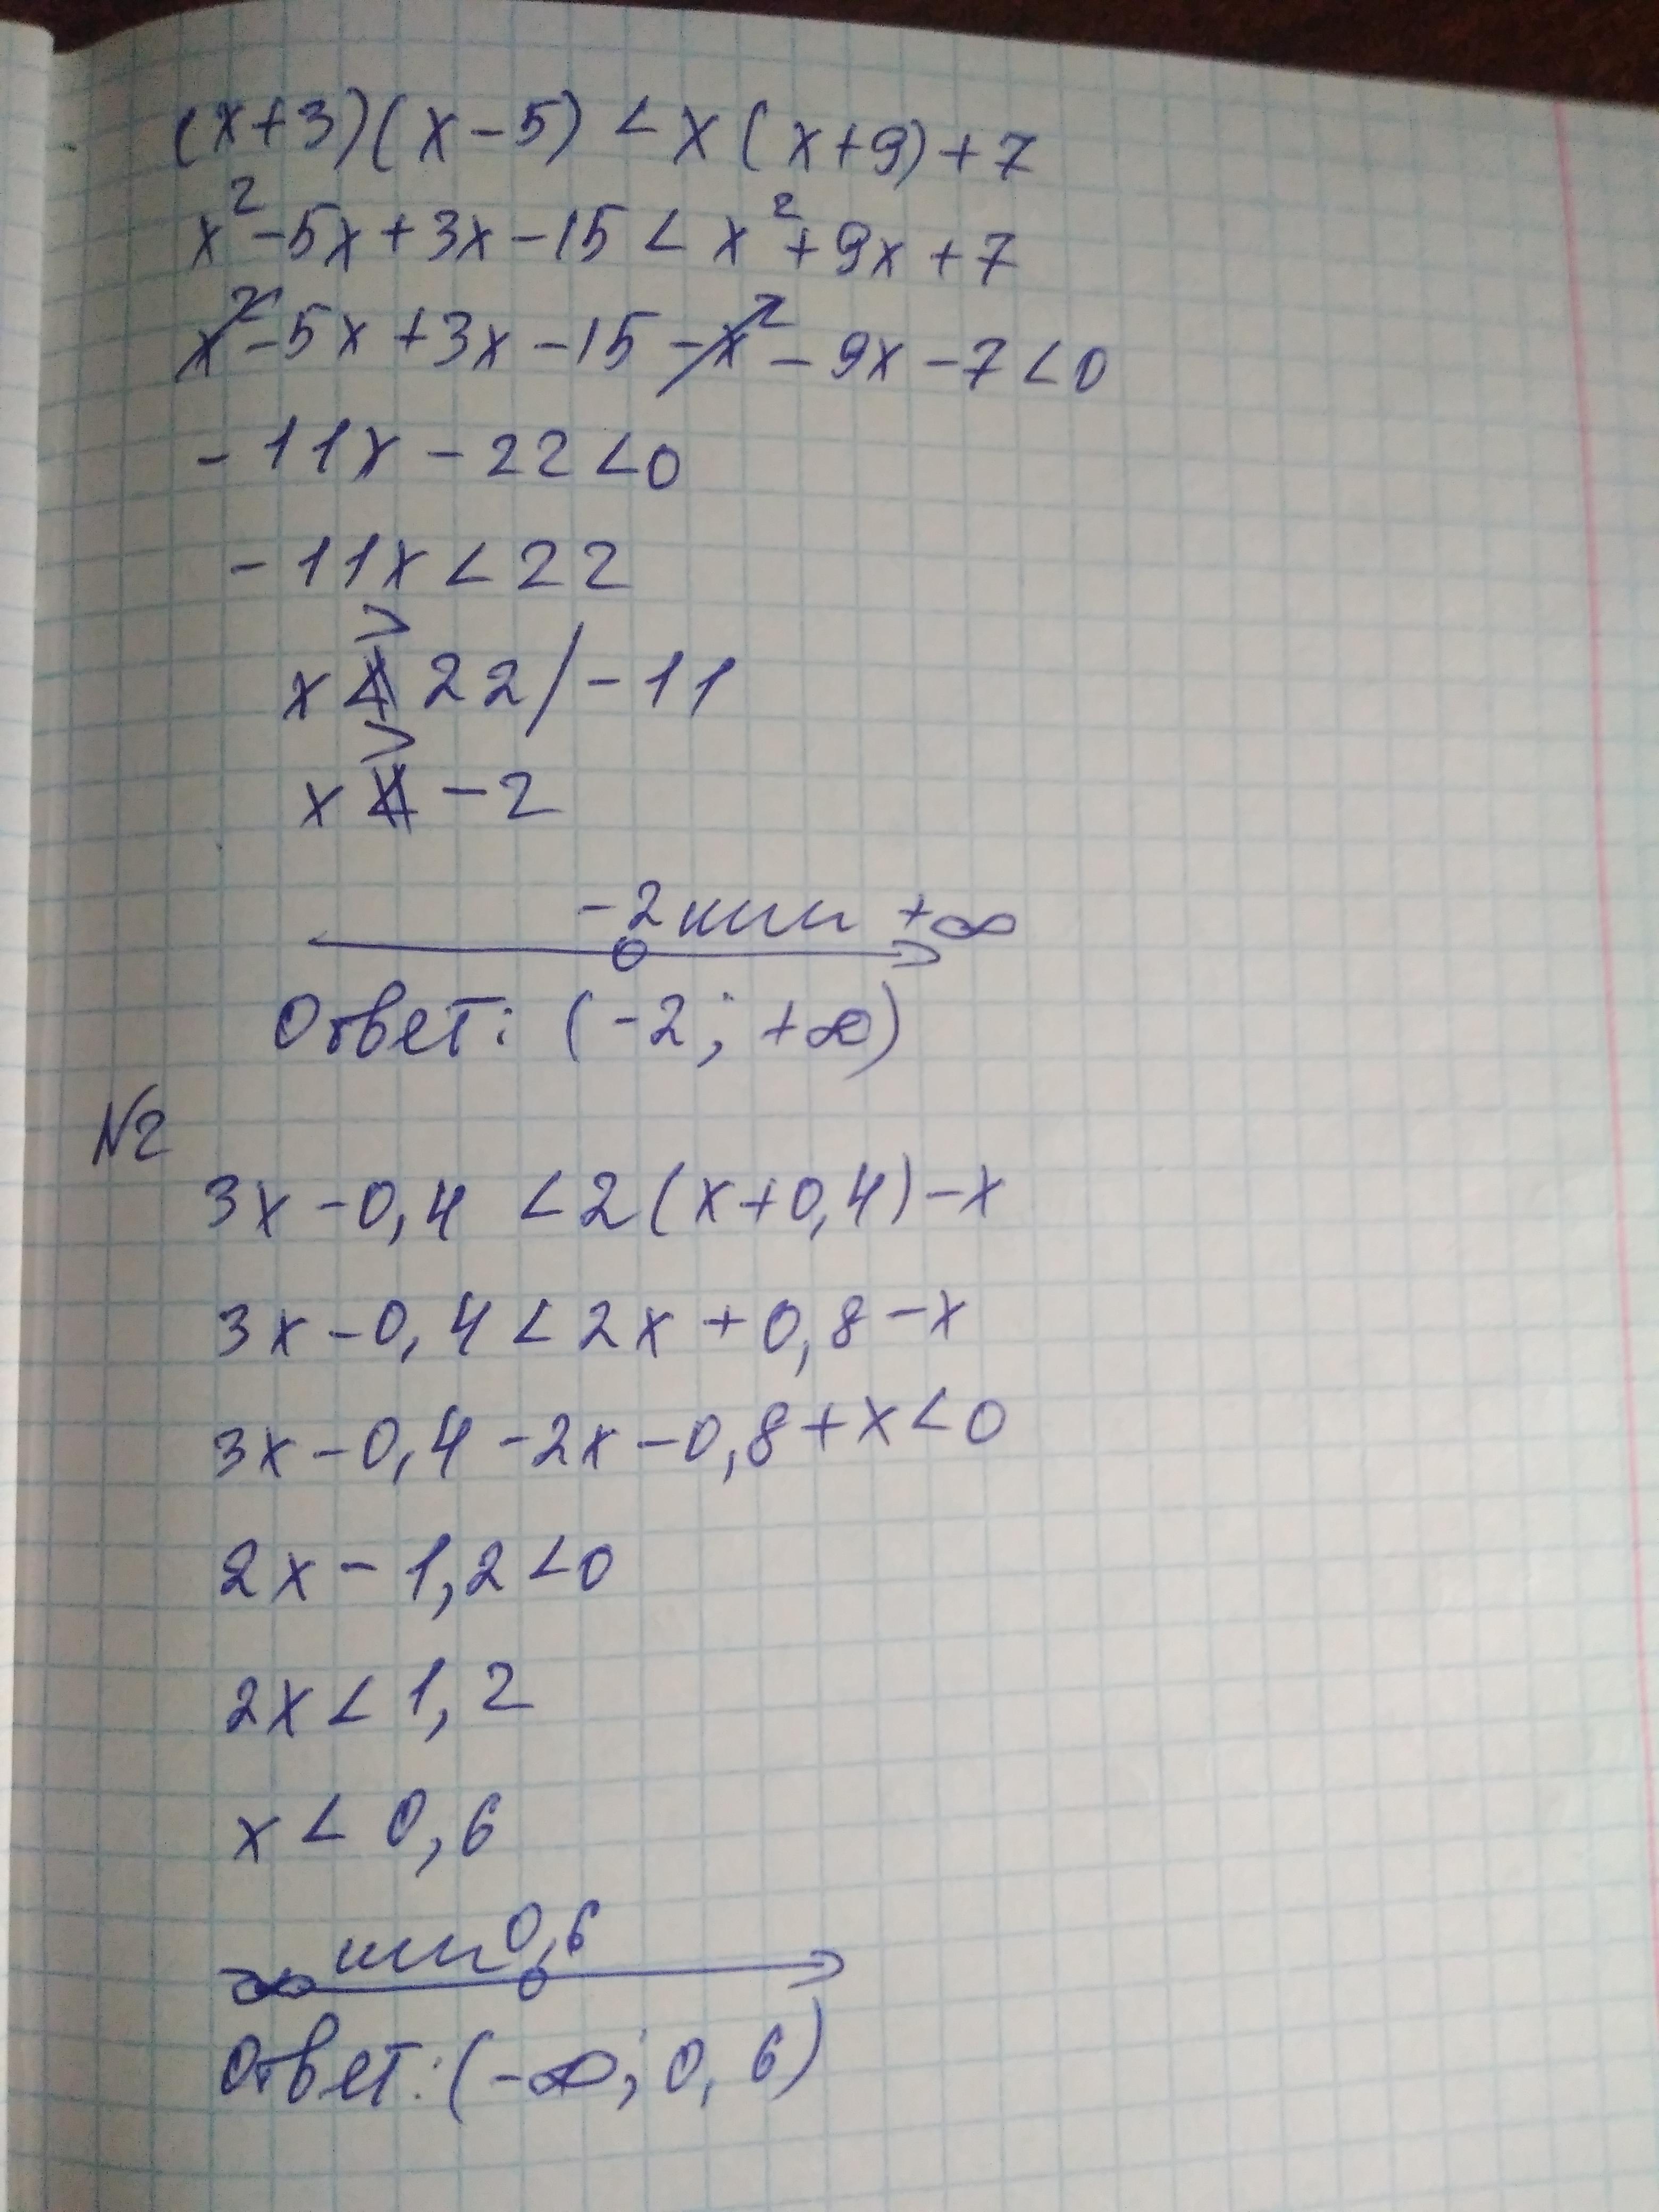 (x+3)(x-5) < x(x+9)+7
x²-5x+3x-15 < x²+9x+7
x²-5x+3x-15-x²-9x-7<0
-11x-22<0
-11x<22
x > 22/-11
x > -2
-2 +∞
Ответ: (-2; +∞)
N2
3x-0,4 <2(x+0,4)-x
3x-0,4<2x+0,8-x
3x-0,4-2x-0,8+x<0
2x-1,2<0
2x<1,2
x< 0,6
∞ 0,6
Ответ: (-∞; 0,6)